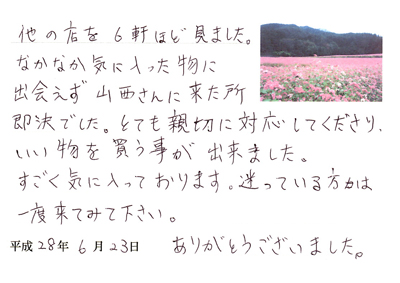 他の店を6軒ほど見ました。
なかなか気に入った物に
出会えず山西さんに来た所
即決でした。とても親切に対応してくださり、
いい物を買う事が出来ました。
すごく気に入っております。迷っている方は
一度来てみて下さい。
平成28年6月23日 ありがとうございました。